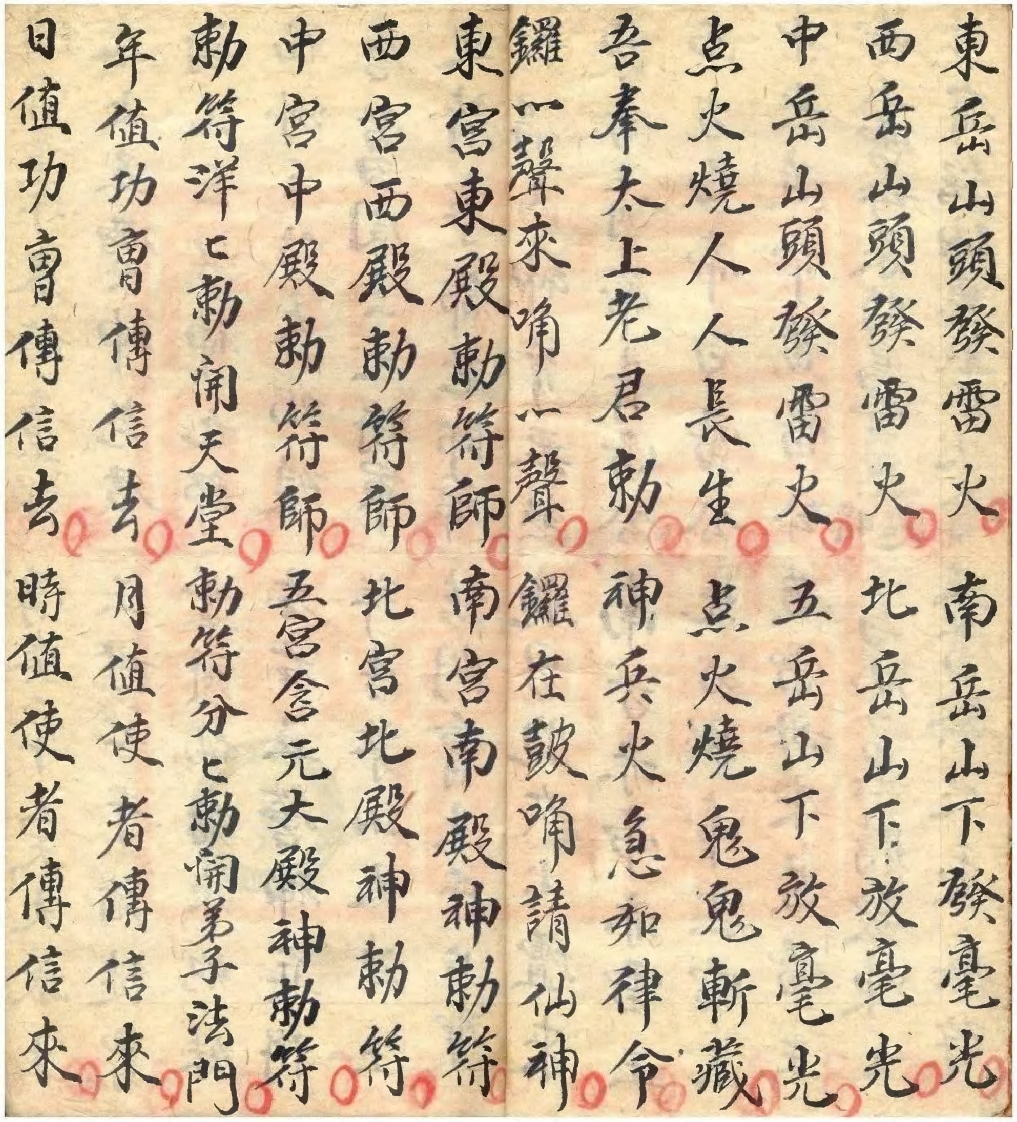 東岳山頭發雷火 南岳山下發毫光
西岳山頭發雷火 北岳山下放毫光
中岳山頭發雷火 五岳山下放毫光
点火燒人人長生 点火燒鬼鬼斬藏
吾奉太上老君勅 神兵火急如律令
鑼以聲來唃以聲 鑼在鼓唃請仙神
東宮東殿勅符師 南宮南殿神勅符
西宮西殿勅符師 北宮北殿神勅符
中宮中殿勅符師 五宮含元大殿神勅符
勅符洋匕勅開天堂 勅符分匕勅開弟子法門
年值功曹傳信去 月值使者傳信來
日值功曹傳信去 時值使者傳信來